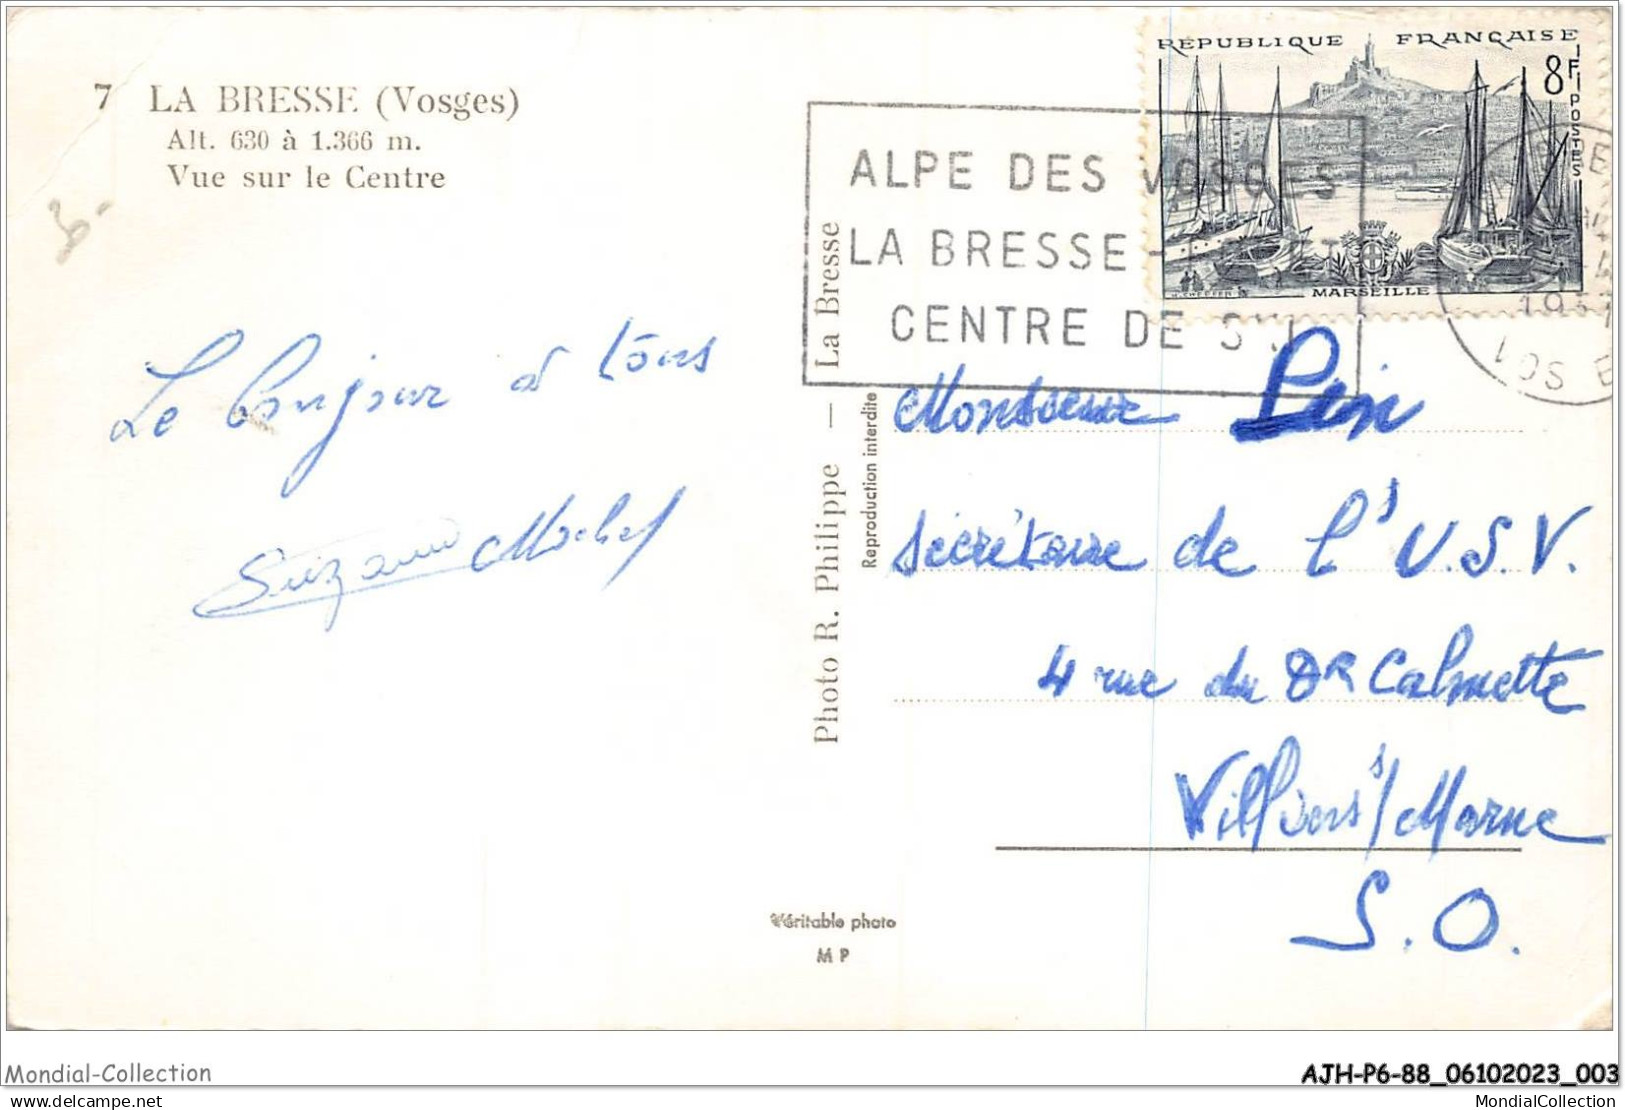 7 LA BRESSE (Vosges)
Alt. 630 à 1.366 m.
Vue sur le Centre
Le bonjour à tous
Suzanne Michel
Photo R. Philippe — La Bresse
Reproduction interdite
Véritable photo
M P
RÉPUBLIQUE FRANÇAISE
8F
POSTES
MARSEILLE
ALPE DES VOSGES
LA BRESSE -
CENTRE DE
1957
VOSGES
Monsieur Pin
Secrétaire de l'U.S.V.
4 rue du DR Calmette
Villiers s/Marne
S.O.
Mondial-Collection
AJH-P6-88_06102023_003
delcampe.net
MondialCollection